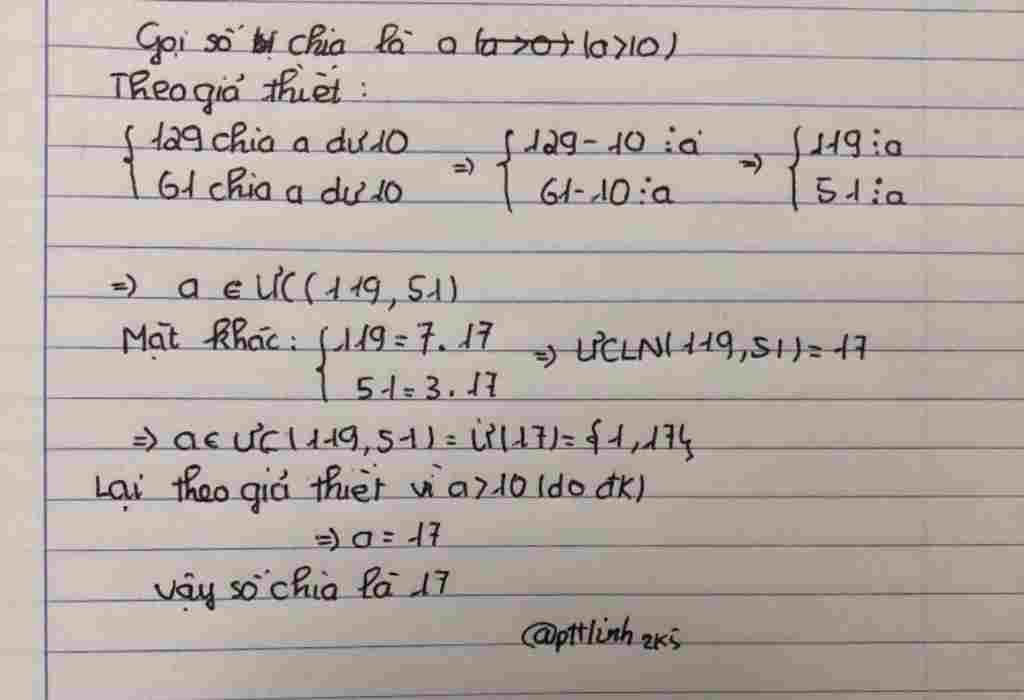 Gọi số bị chia là a (a>0) (a>10)
Theo giả thiết:
{129 chia a dư 10 => {129-10 ⋮ a => {119 ⋮ a
{61 chia a dư 10 {61-10 ⋮ a {51 ⋮ a
=> a ∈ ƯC(119, 51)
Mặt khác: {119 = 7.17 => ƯCLN(119, 51) = 17
{51 = 3.17
=> a ∈ ƯC(119, 51) = Ư(17) = {1, 17}
Lại theo giả thiết vì a>10 (do đk)
=> a = 17
Vậy số chia là 17
@pttlinh 2k5